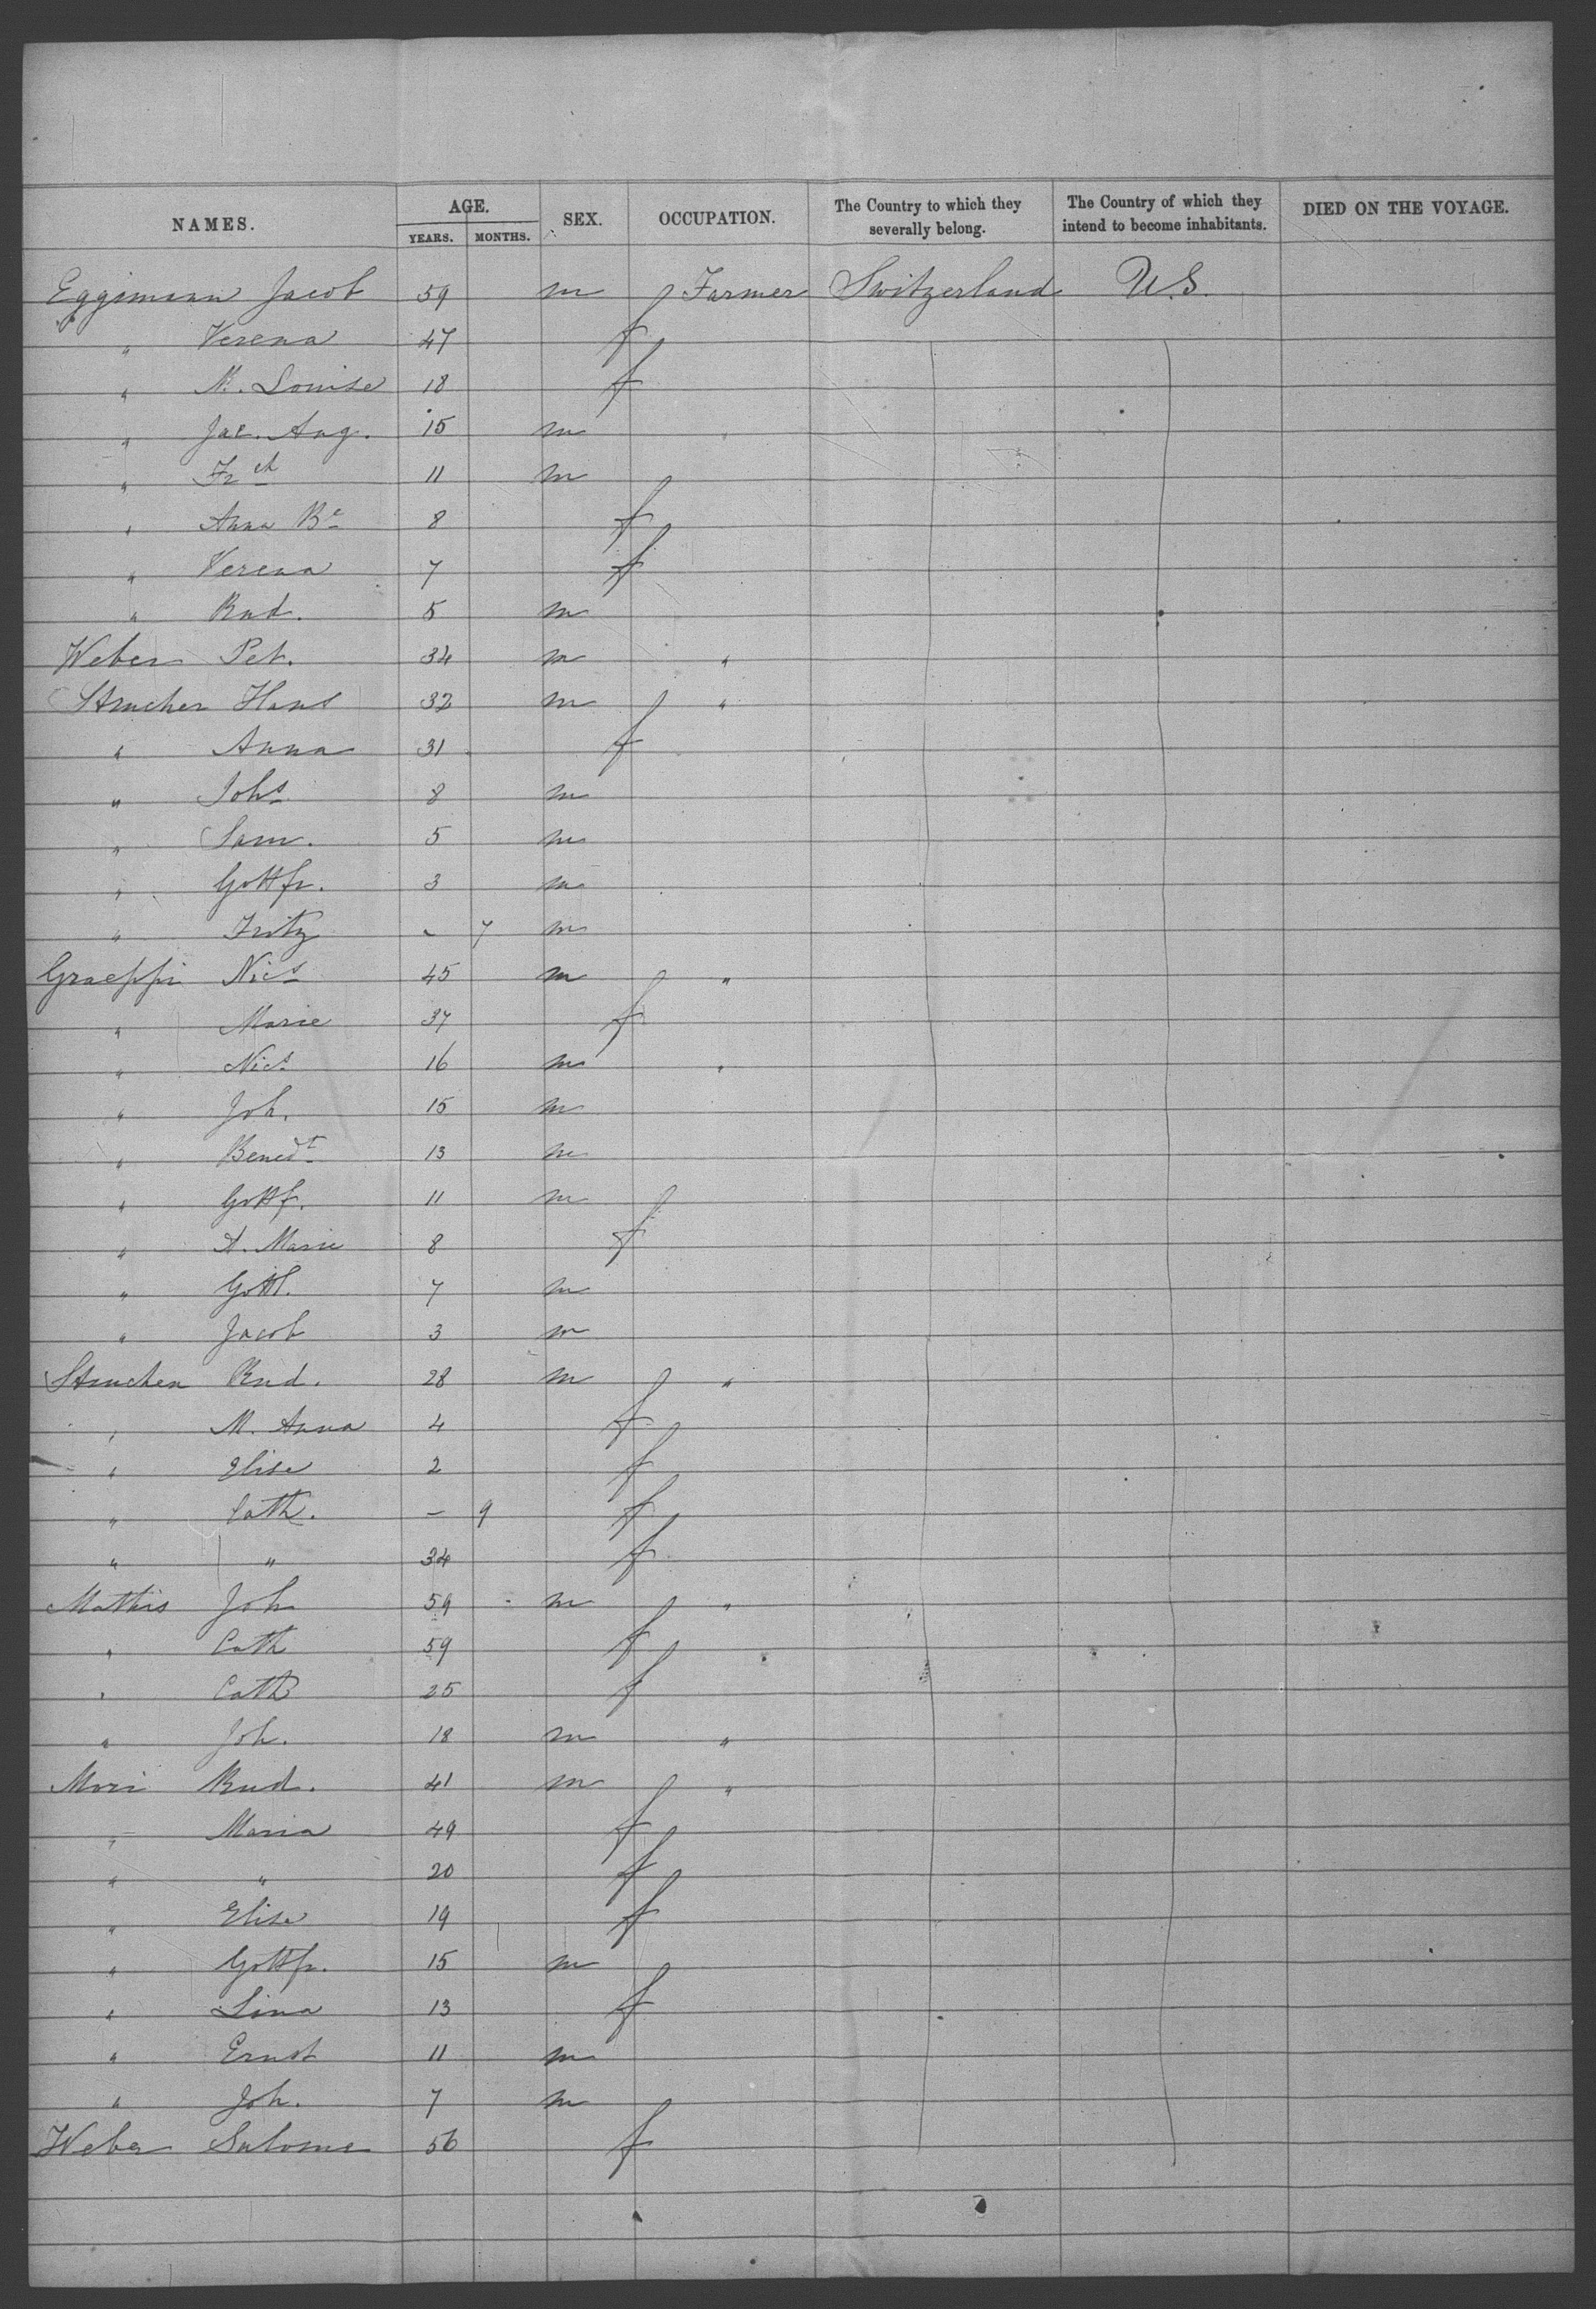 NAMES. AGE. SEX. OCCUPATION. The Country to which they severally belong. The Country of which they intend to become inhabitants. DIED ON THE VOYAGE.
YEARS. MONTHS.
Eggimann Jacob 59 m Farmer Switzerland U.S.
" Verena 47 f
" M. Louise 18 f
" Jac. Aug. 15 m
" Frch 11 m
" Anna Be 8 f
" Verena 7 f
" Rud. 5 m
Weber Pet. 34 m "
Struchen Hans 32 m "
" Anna 31 f
" Johs 8 m
" Sam. 5 m
" Gottfr. 3 m
" Fritz - 7 m
Graeppi Nics 45 m "
" Marie 37 f
" Nics 16 m "
" Joh. 15 m
" Benedt 13 m
" Gottf. 11 m
" A. Marie 8 f
" Gottl. 7 m
" Jacob 3 m
Struchen Rud. 28 m "
" M. Anna 4 f
" Elise 2 f
" Cath. - 9 f
" " 34 f
Mathis Joh 59 m "
" Cath 59 f
" Cath 25 f
" Joh. 18 m "
Mori Rud. 41 m "
" Maria 49 f
" " 20 f
" Elise 19 f
" Gottfr. 15 m
" Lina 13 f
" Ernst 11 m
" Joh. 7 m
Weber Salome 56 f